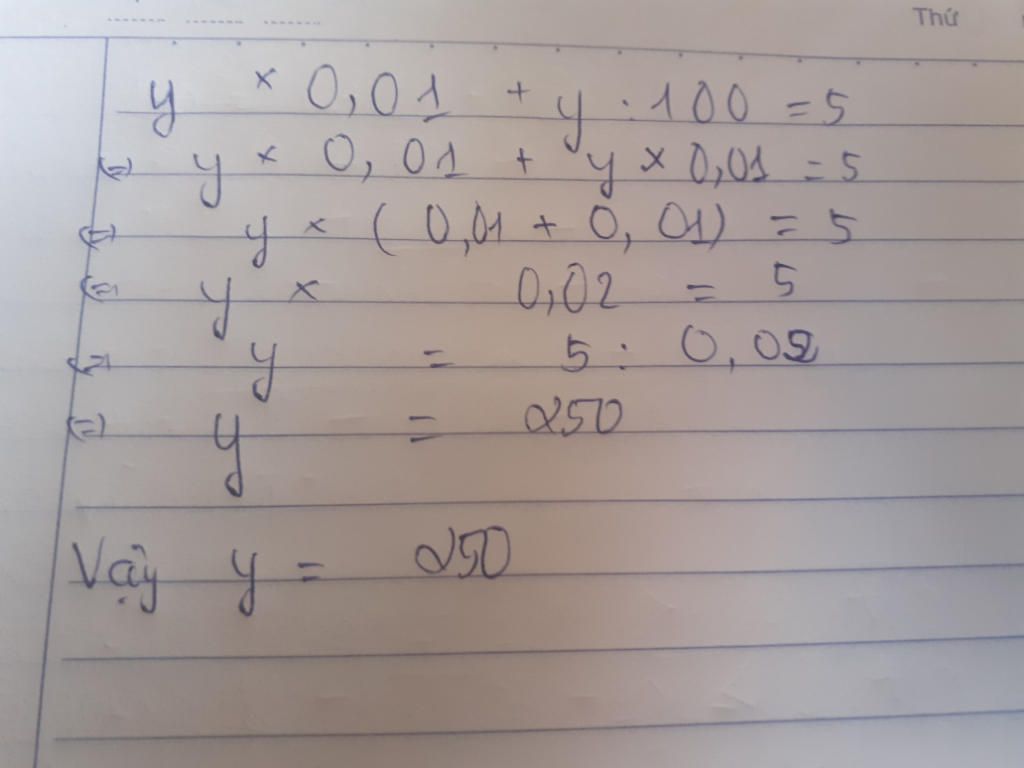 Thứ
y × 0,01 + y : 100 = 5
(=) y × 0,01 + y × 0,01 = 5
(=) y × ( 0,01 + 0,01) = 5
(=) y × 0,02 = 5
(=) y = 5 : 0,02
(=) y = 250
Vậy y = 250